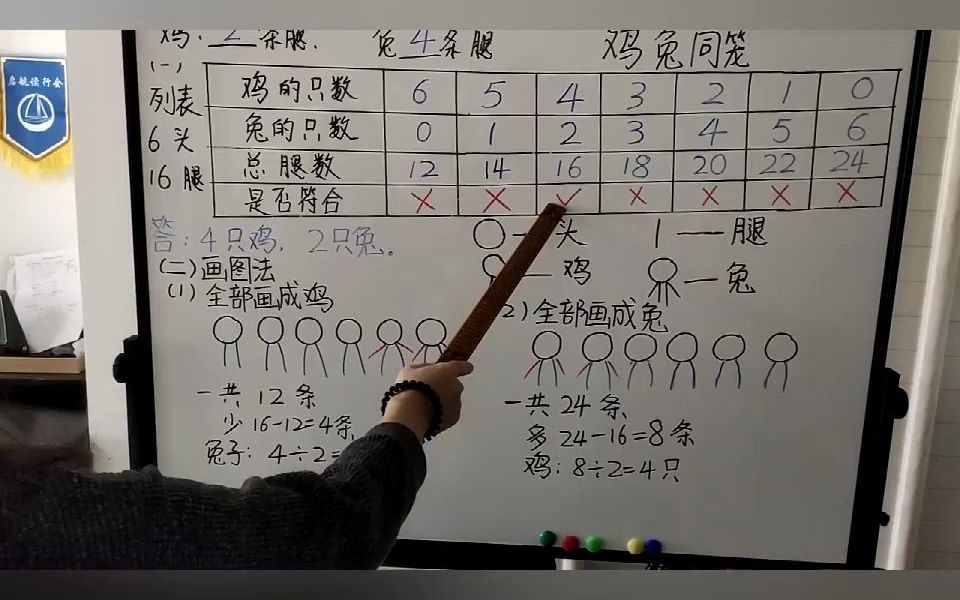 鸡:2条腿. 兔4条腿 鸡兔同笼
启航读行会
(一)
列表
6头
16腿
鸡的只数 6 5 4 3 2 1 0
兔的只数 0 1 2 3 4 5 6
总腿数 12 14 16 18 20 22 24
是否符合 × × ✓ × × × ×
答:4只鸡,2只兔。
○—头 |——腿
—鸡 —兔
(二)画图法
(1)全部画成鸡
一共12条
少16-12=4条
兔子:4÷2=
2)全部画成兔
一共24条
多24-16=8条
鸡:8÷2=4只